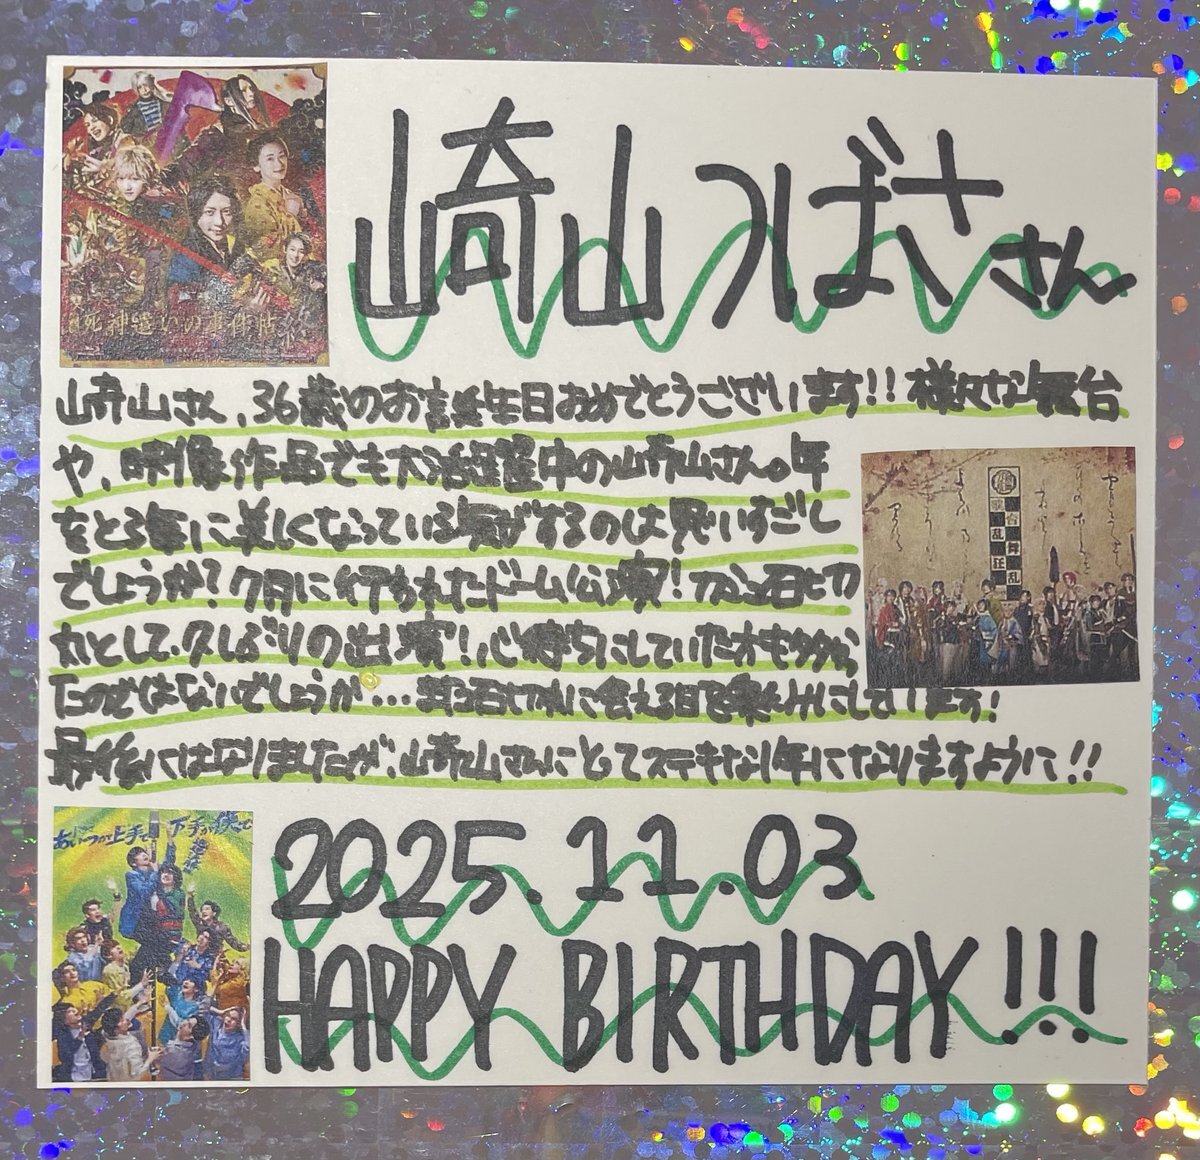 崎山つばささん
死神遣いの事件帖 終
崎山さん、36歳のお誕生日おめでとうございます!!様々な舞台
や、映像作品でも大活躍中の崎山さん。年
をとる毎に美しくなっている気がするのは思いすごし
でしょうか?7月に行われたドーム公演!刀ミュ石切
丸として、久しぶりの出演!心待ちにしていたオも多かっ
たのではないでしょうか…また石切丸に会える日を楽しみにしています!
最後にはなりましたが、崎山さんにとってステキな1年になりますように!!
あいつが上手で下手が僕で
2025.11.03
HAPPY BIRTHDAY!!!